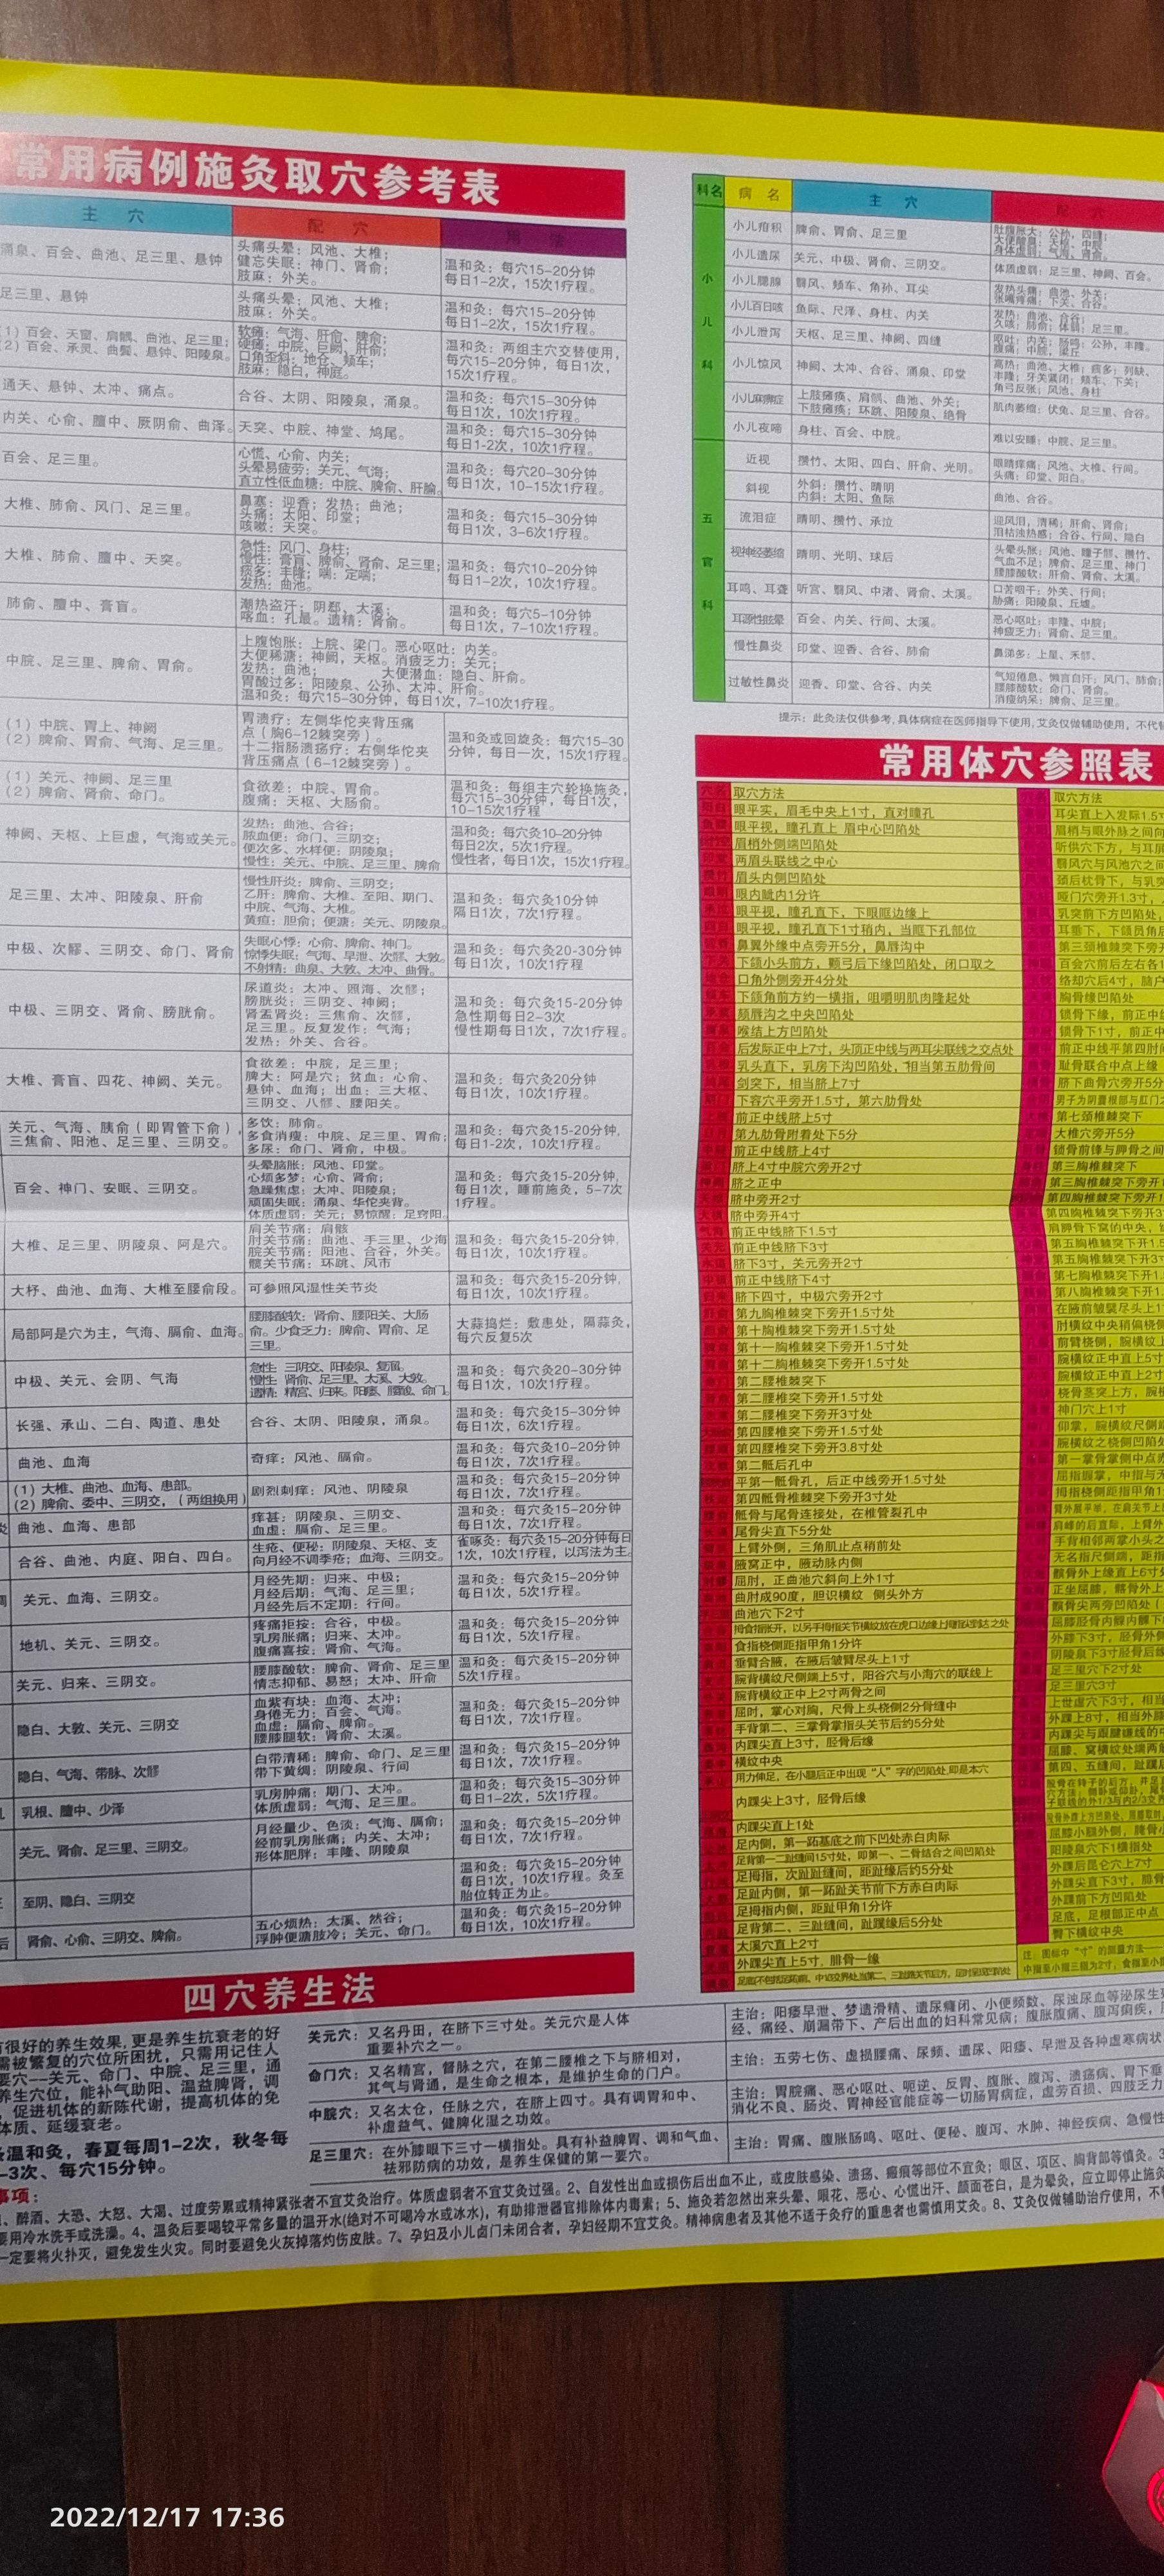 常用病例施灸取穴参考表
主 穴 配 穴 用 法
涌泉、百会、曲池、足三里、悬钟
头痛头晕：风池、大椎；
健忘失眠：神门、肾俞；
肢麻：外关。
温和灸：每穴15-20分钟
每日1-2次，15次1疗程。
足三里、悬钟
头痛头晕：风池、大椎；
肢麻：外关。
温和灸：每穴15-20分钟
每日1-2次，15次1疗程。
(1) 百会、天窗、肩髃、曲池、足三里；
(2) 百会、承灵、曲鬓、悬钟、阳陵泉。
软瘫：气海、肝俞、脾俞；
硬瘫：中脘、巨阙、肝俞；
口角歪斜：地仓、颊车；
肢麻：隐白、神庭。
温和灸：两组主穴交替使用，
每穴15-20分钟，每日1次，
15次1疗程。
通天、悬钟、太冲、痛点。
合谷、太阴、阳陵泉，涌泉。
温和灸：每穴15-30分钟
每日1次，10次1疗程。
内关、心俞、膻中、厥阴俞、曲泽。
天突、中脘、神堂、鸠尾。
温和灸：每穴15-30分钟
每日1-2次，10次1疗程。
百会、足三里。
心慌、心俞、内关；
头晕易疲劳：关元、气海；
直立性低血糖：中脘、脾俞、肝腧。
温和灸：每穴20-30分钟
每日1次，10-15次1疗程。
大椎、肺俞、风门、足三里。
鼻塞：迎香；发热：曲池；
头痛：太阳、印堂；
咳嗽：天突。
温和灸：每穴15-30分钟
每日1次，3-6次1疗程。
大椎、肺俞、膻中、天突。
急性：风门、身柱；
慢性：膏肓、脾俞、肾俞、足三里；
痰多：丰隆；喘：定喘；
发热：曲池。
温和灸：每穴10-20分钟
每日1-2次，10次1疗程。
肺俞、膻中、膏肓。
潮热盗汗：阴郄、太溪；
咯血：孔最。遗精：肾俞。
温和灸：每穴5-10分钟
每日1次，7-10次1疗程。
中脘、足三里、脾俞、胃俞。
上腹饱胀：上脘、梁门。恶心呕吐：内关。
大便稀溏：神阙，天枢。消疲乏力：关元；
发热：曲池； 大便潜血：隐白、肝俞。
胃酸过多：阳陵泉、公孙、太冲、肝俞。
温和灸：每穴15-30分钟，每日1次，7-10次1疗程。
(1) 中脘、胃上、神阙
(2) 脾俞、胃俞、气海、足三里。
胃溃疗：左侧华佗夹背压痛
点（胸6-12棘突旁）。
十二指肠溃疡疗：右侧华佗夹
背压痛点（6-12棘突旁）。
温和灸或回旋灸：每穴15-30
分钟，每日一次，15次1疗程。
(1) 关元、神阙、足三里
(2) 脾俞、肾俞、命门。
食欲差：中脘、胃俞。
腹痛：天枢、大肠俞。
温和灸：每组主穴轮换施灸，
每穴15-30分钟，每日1次，
10-15次1疗程
神阙、天枢、上巨虚，气海或关元。
发热：曲池、合谷；
脓血便：命门、三阴交；
便次多、水样便：阴陵泉；
慢性：关元、中脘、足三里、脾俞
温和灸：每穴灸10-20分钟
每日2次，5次1疗程。
慢性者，每日1次，15次1疗程。
足三里、太冲、阳陵泉、肝俞
慢性肝炎：脾俞、三阴交；
乙肝：脾俞、大椎、至阳、期门、
中脘、气海、大椎。
黄疸：胆俞；便溏：关元、阴陵泉。
温和灸：每穴灸10分钟
隔日1次，7次1疗程。
中极、次髎、三阴交、命门、肾俞
失眠心悸：心俞、脾俞、神门。
惊悸失眠：气海、早泄、次髎、大敦。
不射精：曲泉、大敦、太冲、曲骨。
温和灸：每穴灸20-30分钟
每日1次，10次1疗程
中极、三阴交、肾俞、膀胱俞。
尿道炎：太冲、照海、次髎；
膀胱炎：三阴交、神阙；
肾盂肾炎：三焦俞、次髎，
足三里。反复发作：气海；
发热：外关、合谷。
温和灸：每穴灸15-20分钟
急性期每日2-3次
慢性期每日1次，7次1疗程。
大椎、膏肓、四花、神阙、关元。
食欲差：中脘，足三里；
脾大：阿是穴；贫血：心俞、
悬钟、血海；出血：三大枢、
三阴交、八髎、腰阳关。
温和灸：每穴灸20分钟
每日1次，10次1疗程。
关元、气海、胰俞（即胃管下俞），
三焦俞、阳池、足三里、三阴交。
多饮：肺俞。
多食消瘦：中脘、足三里、胃俞；
多尿：命门、肾俞，中极。
温和灸：每穴灸15-20分钟，
每日1-2次，10次1疗程。
百会、神门、安眠、三阴交。
头晕脑胀：风池、印堂。
心烦多梦：心俞、肾俞；
急躁焦虑：太冲、阳陵泉；
顽固失眠：涌泉、华佗夹背。
体质虚弱：关元；易惊醒：足窍阳。
温和灸：每穴灸15-20分钟，
每日1次，睡前施灸，5-7次
1疗程。
大椎、足三里、阴陵泉、阿是穴。
肩关节痛：肩骸
肘关节痛：曲池、手三里、少海
脘关节痛：阳池、合谷，外关。
髋关节痛：环跳、风市
温和灸：每穴灸15-20分钟，
每日1次，10次1疗程。
大杼、曲池、血海、大椎至腰俞段。
可参照风湿性关节炎
温和灸：每穴灸15-20分钟，
每日1次，10次1疗程。
局部阿是穴为主，气海、膈俞、血海。
腰膝酸软：肾俞、腰阳关、大肠
俞。少食乏力：脾俞、胃俞、足
三里。
大蒜捣烂：敷患处，隔蒜灸，
每穴反复5次
中极、关元、会阴、气海
急性：三阴交、阳陵泉、复溜。
慢性：肾俞、足三里、太溪、大敦。
遗精：精宫、归来。阳痿：腰酸、命门。
温和灸：每穴灸20-30分钟
每日1次，10次1疗程。
长强、承山、二白、陶道、患处
合谷、太阴、阳陵泉，涌泉。
温和灸：每穴灸15-30分钟
每日1次，6次1疗程。
曲池、血海
奇痒：风池、膈俞。
温和灸：每穴灸10-20分钟
每日1次，7次1疗程。
(1) 大椎、曲池、血海、患部。
(2) 脾俞、委中、三阴交，（两组换用）
剧烈刺痒：风池、阴陵泉
温和灸：每穴灸15-20分钟
每日1次，7次1疗程。
曲池、血海、患部
痒甚：阴陵泉、三阴交、
血虚：膈俞、足三里。
温和灸：每穴灸15-20分钟
每日1次，7次1疗程。
合谷、曲池、内庭、阳白、四白。
生疮、便秘：阴陵泉、天枢、支
向月经不调季疮；血海、三阴交。
雀啄灸：每穴灸15-20分钟每日
1次，10次1疗程，以泻法为主。
关元、血海、三阴交。
月经先期：归来、中极；
月经后期：气海、足三里；
月经先后不定期：行间。
温和灸：每穴灸15-20分钟
每日1次，5次1疗程。
地机、关元、三阴交。
疼痛拒按：合谷，中极。
乳房胀痛；归来、太冲。
腹痛喜按：肾俞、气海。
温和灸：每穴灸15-20分钟
每日1次，5次1疗程。
关元、归来、三阴交。
腰膝酸软：脾俞、肾俞、足三里
情志抑郁、易怒；太冲、肝俞
温和灸：每穴灸15-20分钟
5次1疗程。
隐白、大敦、关元、三阴交
血紫有块：血海、太冲；
身倦无力：百会、气海。
血虚：膈俞、脾俞。
腰膝腿软：肾俞、太溪。
温和灸：每穴灸15-20分钟
每日1次，7次1疗程。
隐白、气海、带脉、次髎
白带清稀：脾俞、命门、足三里
带下黄绸：阴陵泉、行间
温和灸：每穴灸15-20分钟
每日1次，7次1疗程。
乳根、膻中、少泽
乳房肿痛：期门、太冲。
体质虚弱：气海、足三里。
温和灸：每穴灸15-30分钟
每日1-2次，5次1疗程。
关元、肾俞、足三里、三阴交。
月经量少、色淡：气海、膈俞；
经前乳房胀痛；内关、太冲；
形体肥胖：丰隆、阴陵泉
温和灸：每穴灸15-20分钟
每日1次，7次1疗程。
至阴、隐白、三阴交
温和灸：每穴灸15-20分钟
每日1次，10次1疗程。灸至
胎位转正为止。
肾俞、心俞、三阴交、脾俞。
五心烦热：太溪、然谷；
浮肿便溏肢冷；关元、命门。
温和灸：每穴灸15-20分钟
每日1次，10次1疗程。
科名 病 名 主 穴 配 穴
小儿科
小儿疳积 脾俞、胃俞、足三里
肚腹胀大：公孙、四缝；
大便酸臭：天枢、中脘
身体虚弱：气海、肾俞。
小儿遗尿 关元、中极、肾俞、三阴交。 体质虚弱：足三里、神阙、百会。
小儿腮腺 翳风、颊车、角孙、耳尖
发热头痛：曲池、外关；
张嘴疼痛：下关、合谷。
小儿百日咳 鱼际、尺泽、身柱、内关
发热：曲池、合谷；
久咳：肺俞；体弱：足三里。
小儿泄泻 天枢、足三里、神阙、四缝
呕吐：内关；肠鸣：公孙，丰隆。
腹痛：中脘，梁丘
小儿惊风 神阙、太冲、合谷、涌泉、印堂
高热：曲池、大椎；痰多：列缺、
丰隆；牙关紧闭：颊车、下关；
角弓反张：风池、身柱
小儿麻痹症
上肢瘫痪、肩髃、曲池、外关；
下肢瘫痪；环跳、阳陵泉、绝骨
肌肉萎缩：伏免、足三里、合谷。
小儿夜啼 身柱、百会、中脘。 难以安睡：中脘、足三里。
五官科
近视 攒竹、太阳、四白、肝俞、光明。
眼睛痒痛：风池、大椎、行间。
头痛：印堂、阳白。
斜视
外斜：攒竹、睛明
内斜：太阳、鱼际
曲池、合谷。
流泪症 睛明、攒竹、承泣
迎风泪，清稀；肝俞、肾俞；
泪枯浊热感；合谷、行间、隐白
视神经萎缩 睛明、光明、球后
头晕头胀：风池、瞳子髎、攒竹、
气血不足；脾俞、足三里、神门
腰膝酸软：肝俞、肾俞、太溪。
耳鸣、耳聋 听宫、翳风、中渚、肾俞、太溪。
口苦咽干：外关、行间；
胁痛：阳陵泉、丘墟。
耳源性眩晕 百会、内关、行间、太溪。
恶心呕吐：丰隆、中脘；
神疲乏力；肾俞、足三里。
慢性鼻炎 印堂、迎香、合谷、肺俞 鼻涕多：上星、禾髎。
过敏性鼻炎 迎香、印堂、合谷、内关
气短倦息、懒言自汗；风门、肺俞；
腰膝酸软：命门、肾俞。
消瘦纳呆：脾俞、足三里。
提示：此灸法仅供参考，具体病症在医师指导下使用，艾灸仅做辅助使用，不代
常用体穴参照表
取穴方法
眼平实，眉毛中央上1寸，直对瞳孔
眼平视，瞳孔直上 眉中心凹陷处
眉梢外侧端凹陷处
两眉头联线之中心
眉头内侧凹陷处
眼内眦内1分许
眼平视，瞳孔直下，下眼眶边缘上
眼平视，瞳孔直下1寸稍内，当眶下孔部位
鼻翼外缘中点旁开5分，鼻唇沟中
下颌小头前方，颧弓后下缘凹陷处，闭口取之
口角外侧旁开4分处
下颌角前方约一横指，咀嚼明肌肉隆起处
颏唇沟之中央凹陷处
喉结上方凹陷处
后发际正中上7寸，头顶正中线与两耳尖联线之交点处
乳头直下，乳房下沟凹陷处，相当第五肋骨间
剑突下，相当脐上7寸
下容穴平旁开1.5寸，第六肋骨处
前正中线脐上5寸
第九肋骨附着处下5分
前正中线脐上4寸
脐上4寸中脘穴旁开2寸
脐之正中
脐中旁开2寸
脐中旁开4寸
前正中线脐下1.5寸
前正中线脐下3寸
脐下3寸，关元旁开2寸
前正中线脐下4寸
脐下四寸，中极穴旁开2寸
第九胸椎棘突下旁开1.5寸处
第十胸椎棘突下旁开1.5寸处
第十一胸椎棘突下旁开1.5寸处
第十二胸椎棘突下旁开1.5寸处
第二腰椎棘突下
第二腰椎突下旁开1.5寸处
第二腰椎突下旁开3寸处
第四腰椎突下旁开1.5寸处
第四腰椎突下旁开3.8寸处
第二骶后孔中
平第一骶骨孔，后正中线旁开1.5寸处
第四骶骨椎棘突下旁开3寸处
骶骨与尾骨连接处，在椎管裂孔中
尾骨尖直下5分处
上臂外侧，三角肌止点稍前处
腋窝正中，腋动脉内侧
屈肘，正曲池穴斜向上外1寸
曲肘成90度，胆识横纹 侧头外方
曲池穴下2寸
食指桡侧距指甲角1分许
垂臂合腋，在腋后皱臂尽头上1寸
腕背横纹尺侧端上5寸，阳谷穴与小海穴的联线上
腕背横纹正中上2寸两骨之间
屈肘，掌心对胸，尺骨上头桡侧2分骨缝中
手背第二、三掌骨掌指头关节后约5分处
内踝尖直上3寸，胫骨后缘
横纹中央
用力伸足，在小腿后正中出现“人”字的凹陷处，即是本穴
内踝尖上3寸，胫骨后缘
内踝尖直上1处
足内侧，第一跖基底之前下凹处赤白肉际
足背第一二趾缝间1.5寸处，即第一、二骨结合之间凹陷处
足拇指，次趾趾缝间，距趾缘后约5分处
足趾内侧，第一跖趾关节前下方赤白肉际
足拇指内侧，距趾甲角1分许
足背第二、三趾缝间，趾蹼缘后5分处
太溪穴直上2寸
外踝尖直上5寸，腓骨一缘
取穴方法
耳尖直上入发际1.5寸
眉梢与眼外眦之间向
听供穴下方，与耳屏
翳风穴与风池穴之间
颈后枕骨下，与乳突
哑门穴旁开1.3寸，
乳突前下方凹陷处，
耳垂下，下颌员角后
第三颈椎棘突下旁开
百会穴前后左右各1
络却穴后4寸，脑户
胸骨缘凹陷处
锁骨下缘，前正中线
锁骨下1寸，前正中
前正中线平第四肘间
耻骨联合中点上缘
脐下曲骨穴旁开5分
男子为阴囊根部与肛门之
第七颈椎棘突下
大椎穴旁开5分
锁骨前锋与胛骨之间
第三胸椎棘突下
第三胸椎棘突下旁开1
第四胸椎棘突下旁开1
第四胸椎棘突下旁开3
肩胛骨下窝的中央，
第五胸椎棘突下开1.5
第五胸椎棘突下开3寸
第七胸椎棘突下开1.
第八胸椎棘突下开1.
在腋前皱襞尽头上1寸
肘横纹中央稍偏桡侧
前臂桡侧，腕横纹上
腕横纹正中直上5寸
腕横纹正中直上2寸
桡骨茎突上方，腕横
神门穴上1寸
仰掌，腕横纹尺侧端
腕横纹之桡侧凹陷处
第一掌骨掌侧中点赤
屈指握掌，中指与无
拇指桡侧距指甲角1分
臂外展平举，在肩关节上
肩峰的后直际，上臂外
手背相邻两掌小头之
无名指尺侧端，距指
髌骨外上缘直上6寸处
正坐屈膝，髂骨外上
髌骨尖两旁凹陷处（
屈膝胫骨内髁内髁下
外膝下3寸，胫骨外侧
阴陵泉下3寸胫骨后缘
足三里穴下2寸处
足三里穴3寸
上世虚穴下3寸，相当
外踝上8寸，相当外膝
内踝尖与跟腱嫌线的中
屈膝、窝横纹处端两筋
第四、五缝间，趾蹼后
屈膝小腿外侧，腌骨小
阳陵泉穴下1横指处
外踝后昆仑穴上7寸
外踝尖直下3寸，腓骨
外踝前下方凹陷处
足底，足根部正中点
臀下横纹中央
注：图标中“寸”的测量方法一
中指至小摇三摇为2寸，食指至小
四穴养生法
有很好的养生效果，更是养生抗衰老的好
需被繁复的穴位所困扰，只需用记住人
要穴--关元、命门、中脘、足三里，通
养生穴位，能补气助阳、温益脾肾，调
，促进机体的新陈代谢，提高机体的免
体质、延缓衰老。
温和灸，春夏每周1-2次，秋冬每
-3次、每穴15分钟。
关元穴：又名丹田，在脐下三寸处。关元穴是人体
重要补穴之一。
命门穴：又名精宫，督脉之穴，在第二腰椎之下与脐相对，
其气与肾通，是生命之根本，是维护生命的门户。
中脘穴：又名太仓，任脉之穴，在脐上四寸。具有调胃和中、
补虚益气、健脾化湿之功效。
足三里穴：在外膝眼下三寸一横指处。具有补益脾胃、调和气血、
祛邪防病的功效，是养生保健的第一要穴。
主治：阳痿早泄、梦遗滑精、遗尿癃闭、小便频数、尿浊尿血等泌尿生
经、痛经、崩漏带下、产后出血的妇科常见病；腹胀腹痛，腹泻痢疾，
主治：五劳七伤、虚损腰痛、尿频、遗尿、阳痿、早泄及各种虚寒病状
主治：胃脘痛、恶心呕吐、呃逆、反胃、腹胀、腹泻、溃疡病、胃下垂
消化不良、肠炎、胃神经官能症等一切肠胃病症，虚劳百损、四肢乏力
主治：胃痛、腹胀肠鸣、呕吐、便秘、腹泻、水肿、神经疾病、急慢性
事项：
、醉酒、大恐、大怒、大渴、过度劳累或精神紧张者不宜艾灸治疗。体质虚弱者不宜艾灸过强。2、自发性出血或损伤后出血不止，或皮肤感染、溃疡、瘢痕等部位不宜灸；眼区、项区、胸背部等慎灸。3
要用冷水洗手或洗澡。4、温灸后要喝较平常多量的温开水(绝对不可喝冷水或冰水)，有助排泄器官排除体内毒素；5、施灸若忽然出来头晕、眼花、恶心、心慌出汗、颜面苍白，是为晕灸，应立即停止施灸
一定要将火扑灭，避免发生火灾。同时要避免火灰掉落灼伤皮肤。7、孕妇及小儿卤门未闭合者，孕妇经期不宜艾灸。精神病患者及其他不适于灸疗的重患者也需慎用艾灸。8、艾灸仅做辅助治疗使用，不
2022/12/17 17:36